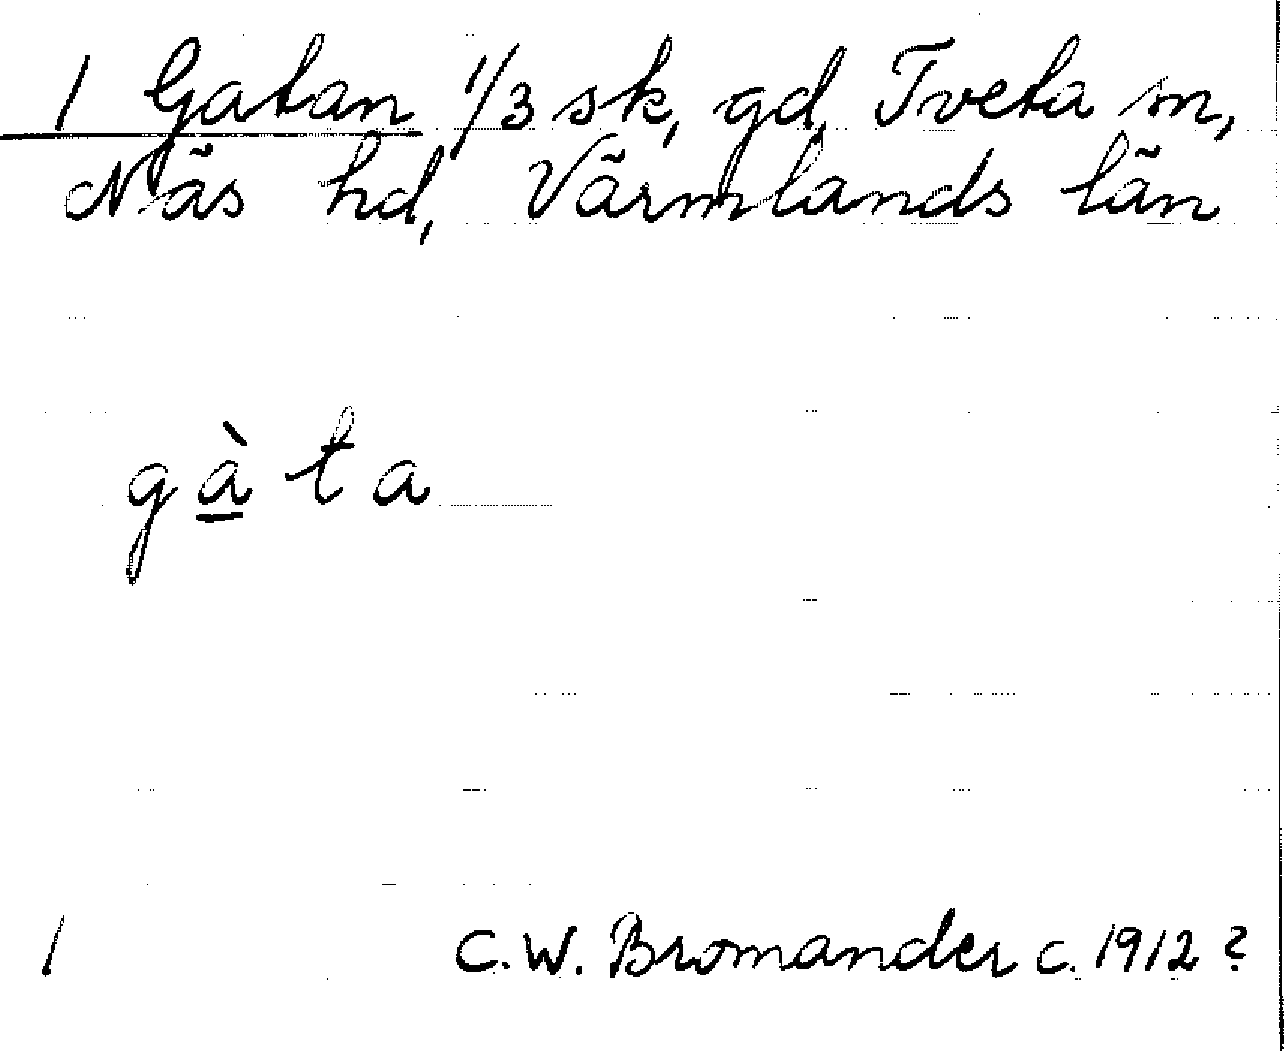 1 Gatan 1/3 sk, gd, Tveta sn,
Näs hd, Värmlands län
gà̱ta
1 C.W. Bromander c. 1912?